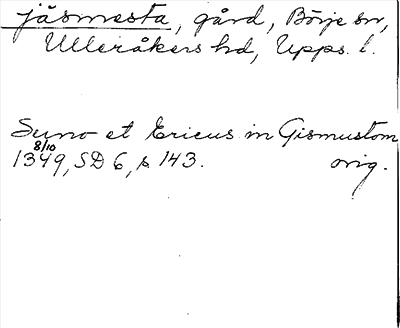 jäsmesta, gård, Börje sn,
Ulleråkers hd, Upps. l.
Suno et Ericus in Gismustom
1349 8/10, SD 6, s 143. orig.